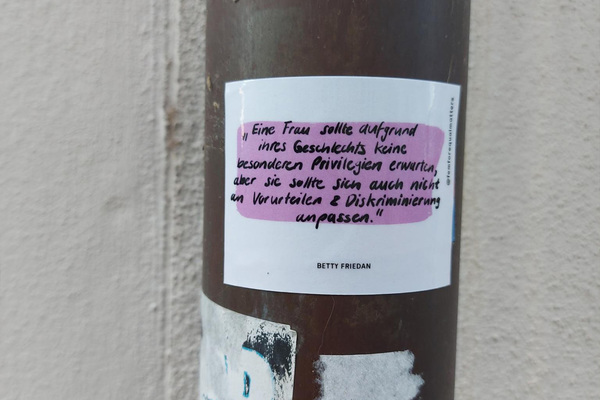 „Eine Frau sollte aufgrund
ihres Geschlechts keine
besonderen Privilegien erwarten,
aber sie sollte sich auch nicht
an Vorurteilen & Diskriminierung
anpassen."
BETTY FRIEDAN
@femforequalmatters